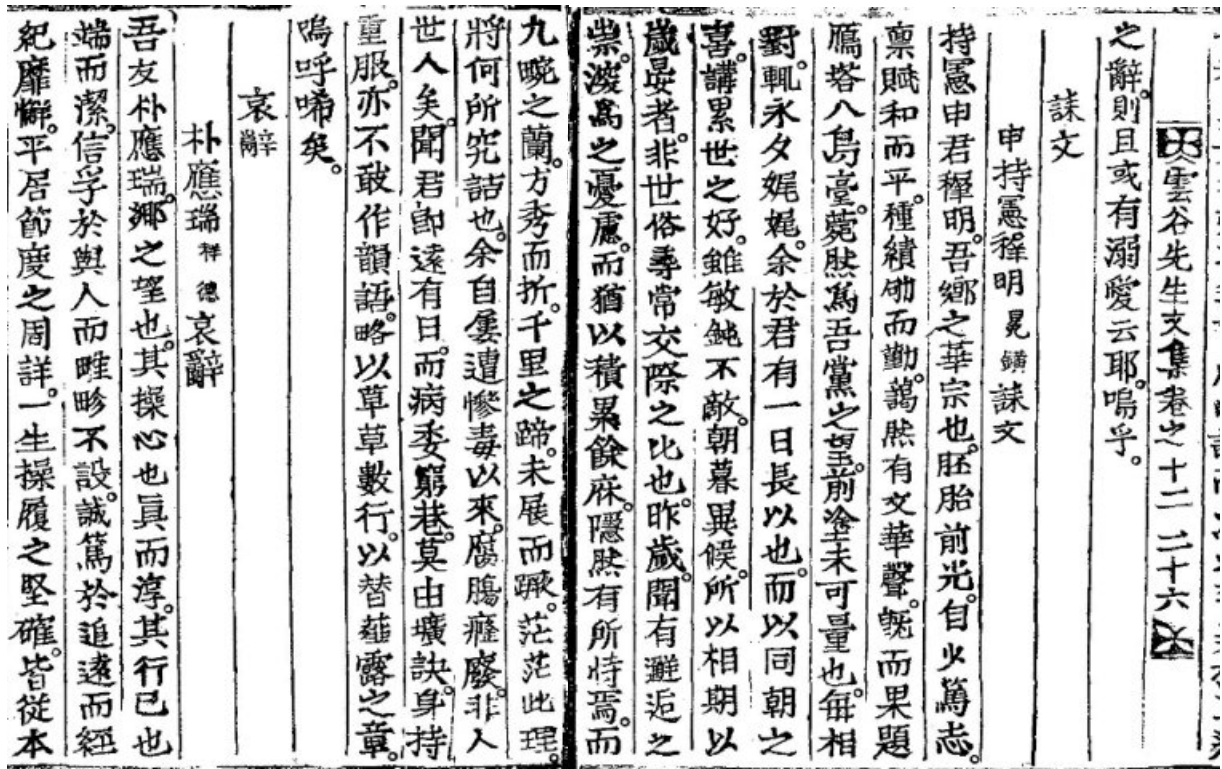 雲谷先生文集卷之十二 二十六
之辭。則且或有溺愛云耶。嗚乎。
誄文
申持憲穉明 冕鐄 誄文
持憲申君穉明。吾鄉之華宗也。胚胎前光。自少篤志。
禀賦和而平。種績劬而勤。藹然有文華聲。旣而果題
鴈塔八烏臺。菀然爲吾黨之望。前塗未可量也。每相
對。輒永夕娓娓。余於君有一日長以也。而以同朝之
喜。講累世之好。雖敏鈍不敵。朝暮異候。所以相期以
歲晏者。非世俗尋常交際之比也。昨歲。聞有邂逅之
祟。深爲之憂慮。而猶以積累餘庥。隱然有所恃焉。而
九畹之蘭。方秀而折。千里之蹄。未展而蹶。茫茫此理。
將何所究詰也。余自屢遭慘毒以來。腐膓癃廢。非人
世人矣。聞君卽遠有日。而病委窮巷。莫由壙訣。身持
重服。亦不敢作韻語。略以草草數行。以替薤露之章。
嗚呼唏矣。
哀辭
朴應瑞 祥德 哀辭
吾友朴應瑞。鄉之望也。其操心也眞而淳。其行已也
端而潔。信孚於與人而畦畛不設。誠篤於追遠而經
紀靡懈。平居節度之周詳。一生操履之堅確。皆從本